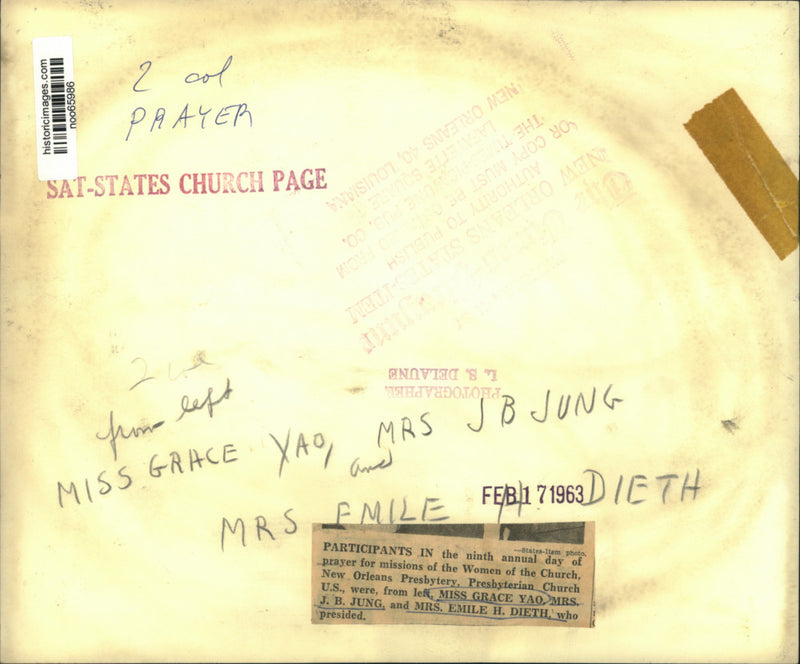 historicimages.com
noo65986
2 col
PRAYER
SAT-STATES CHURCH PAGE
NEW ORLEANS STATES-ITEM
AUTHORITY TO PUBLISH
OR COPY MUST BE
FROM
LAFAYETTE SQUARE
NEW ORLEANS 40, LOUISIANA
PHOTOGRAPHER
L. S. DELAUNE
2 col
from left
MISS GRACE YAO, MRS J B JUNG
and
MRS EMILE H DIETH
FEB 17 1963
—States-Item photo.
PARTICIPANTS IN the ninth annual day of
prayer for missions of the Women of the Church,
New Orleans Presbytery, Presbyterian Church
U.S., were, from left, MISS GRACE YAO, MRS.
J. B. JUNG, and MRS. EMILE H. DIETH, who
presided.